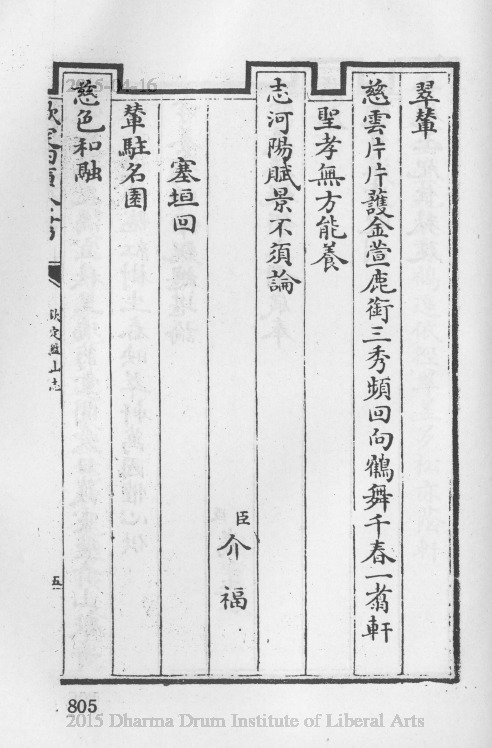 翠輦
慈雲片片護金萱鹿銜三秀頻回向鶴舞千春一翥軒
聖孝無方能養
志河陽賦景不須論
臣介福
塞垣回
輦駐名園
慈色和融
欽定四庫全書
欽定盤山志
五
805
2015-04-16
2015 Dharma Drum Institute of Liberal Arts